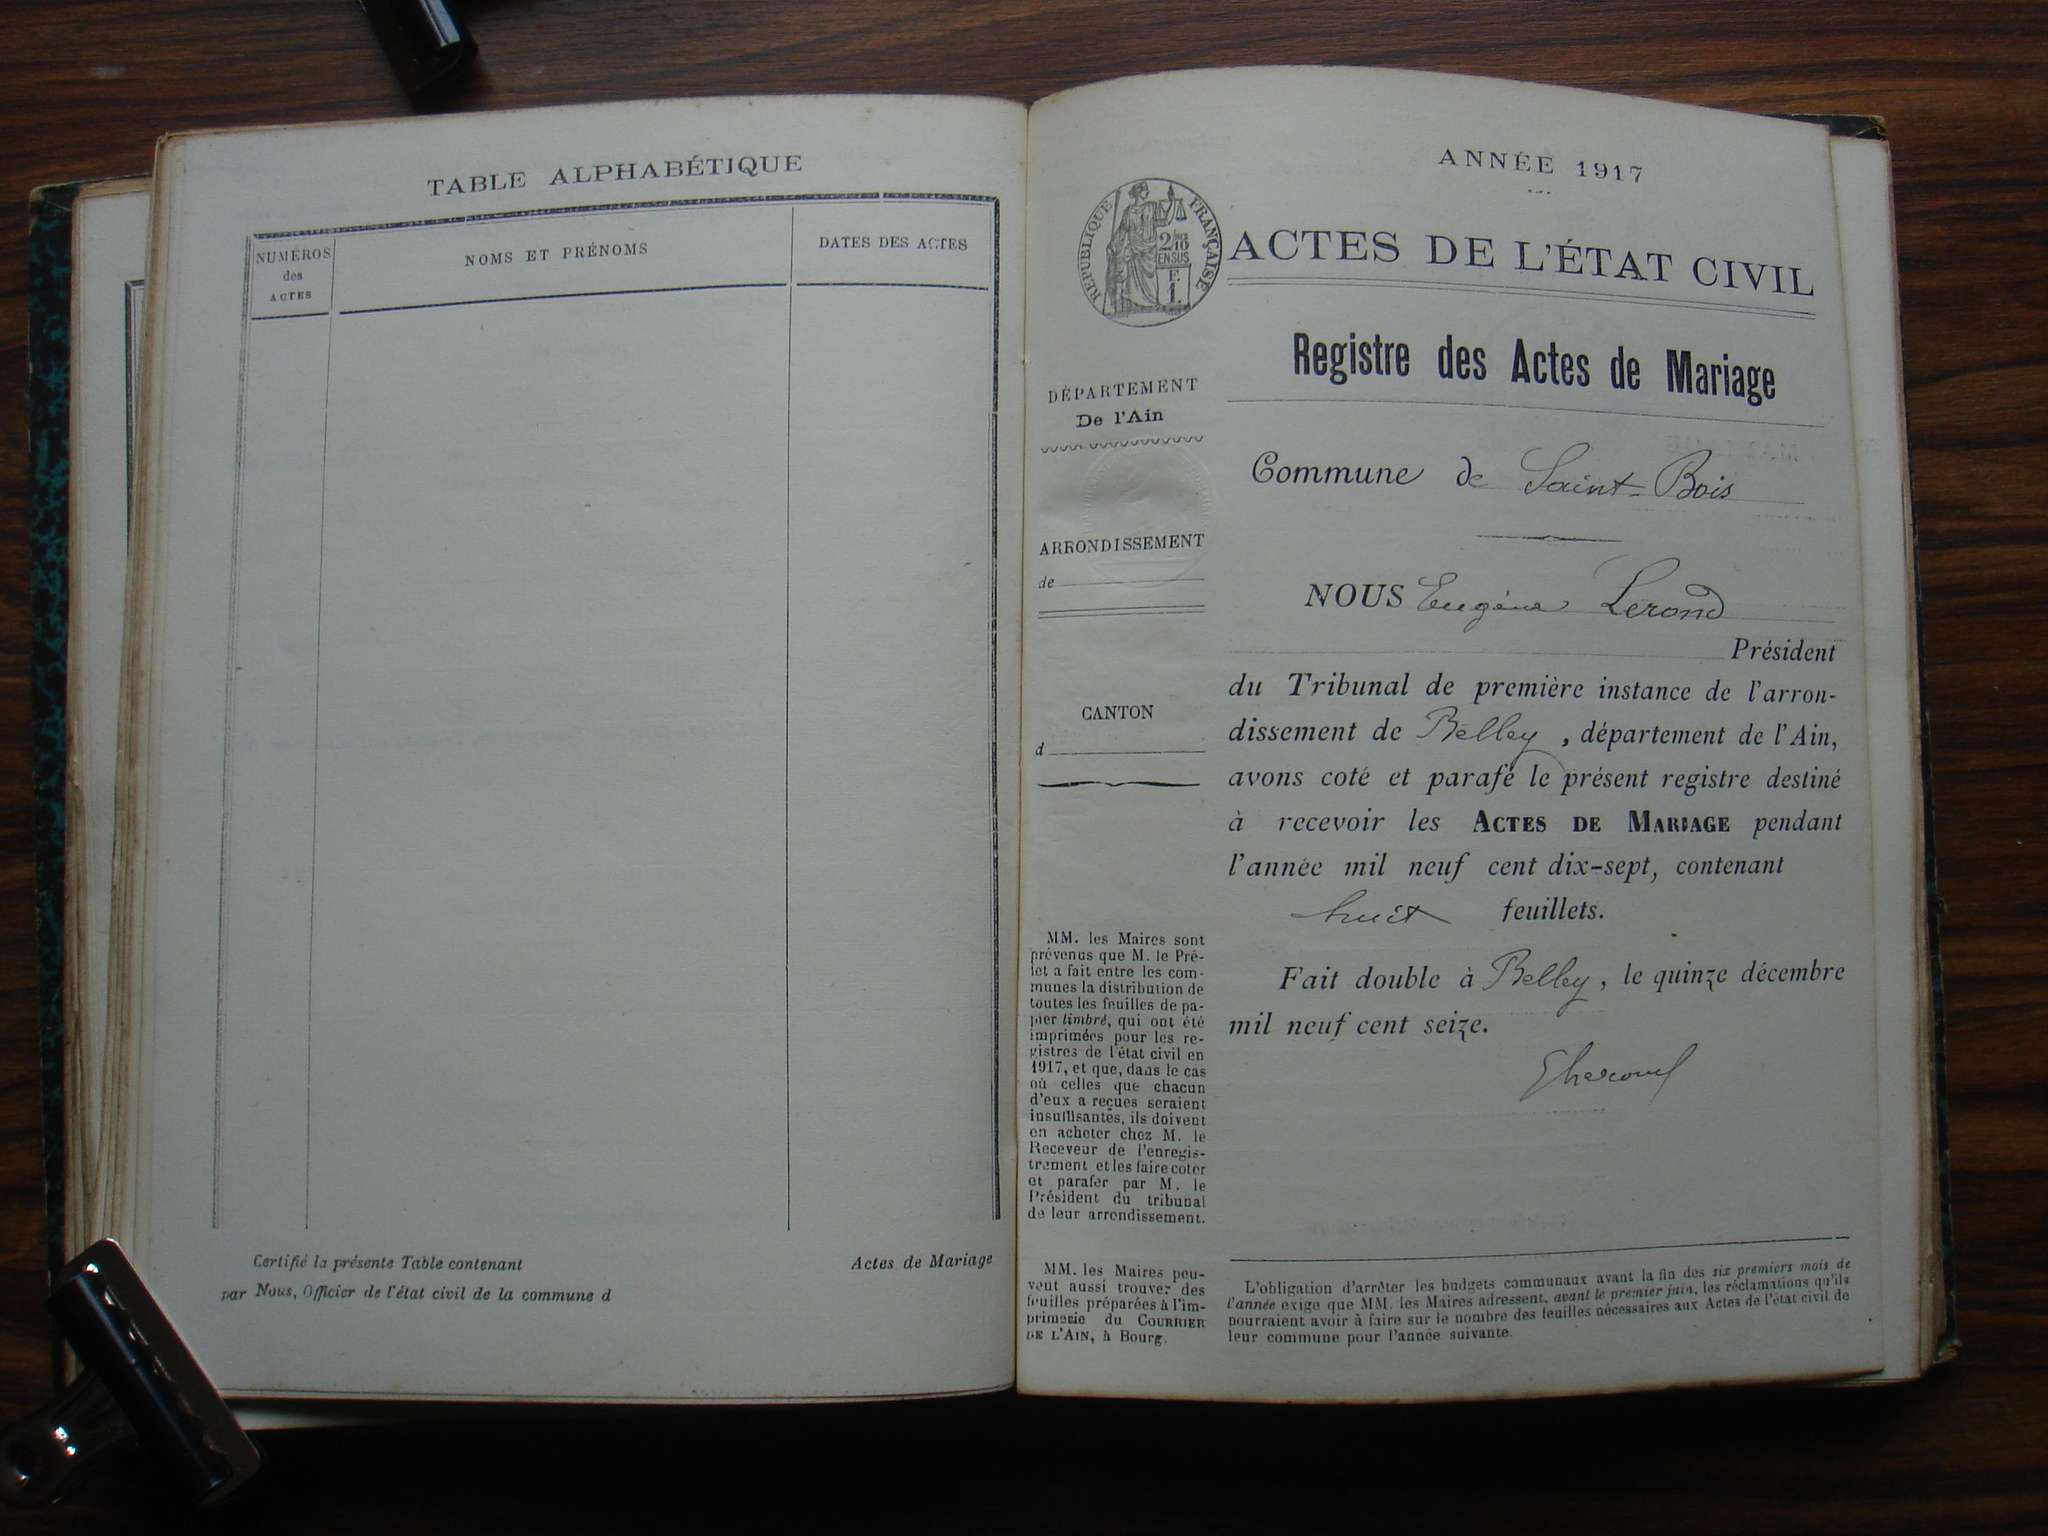 TABLE ALPHABÉTIQUE
NUMÉROS
des
ACTES
NOMS ET PRÉNOMS
DATES DES ACTES
Certifié la présente Table contenant
Actes de Mariage
par Nous, Officier de l'état civil de la commune d
ANNÉE 1917
RÉPUBLIQUE FRANÇAISE
2/10
EN SUS
F.
1.
ACTES DE L'ÉTAT CIVIL
Registre des Actes de Mariage
DÉPARTEMENT
De l'Ain
ARRONDISSEMENT
de
CANTON
d
MM. les Maires sont
prévenus que M. le Pré-
fet a fait entre les com-
munes la distribution de
toutes les feuilles de pa-
pier timbré, qui ont été
imprimées pour les re-
gistres de l'état civil en
1917, et que, dans le cas
où celles que chacun
d'eux a reçues seraient
insuffisantes, ils doivent
en acheter chez M. le
Receveur de l'enregis-
trement et les faire coter
et parafer par M. le
Président du tribunal
de leur arrondissement.
MM. les Maires peu-
vent aussi trouver des
feuilles préparées à l'im-
primerie du COURRIER
DE L'AIN, à Bourg.
Commune de Saint-Bois
NOUS Eugène Lerond
Président
du Tribunal de première instance de l'arron-
dissement de Belley, département de l'Ain,
avons coté et parafé le présent registre destiné
à recevoir les ACTES DE MARIAGE pendant
l'année mil neuf cent dix-sept, contenant
huit feuillets.
Fait double à Belley, le quinze décembre
mil neuf cent seize.
L'obligation d'arrêter les budgets communaux avant la fin des six premiers mois de
l'année exige que MM. les Maires adressent, avant le premier juin, les réclamations qu'ils
pourraient avoir à faire sur le nombre des feuilles nécessaires aux Actes de l'état civil de
leur commune pour l'année suivante.